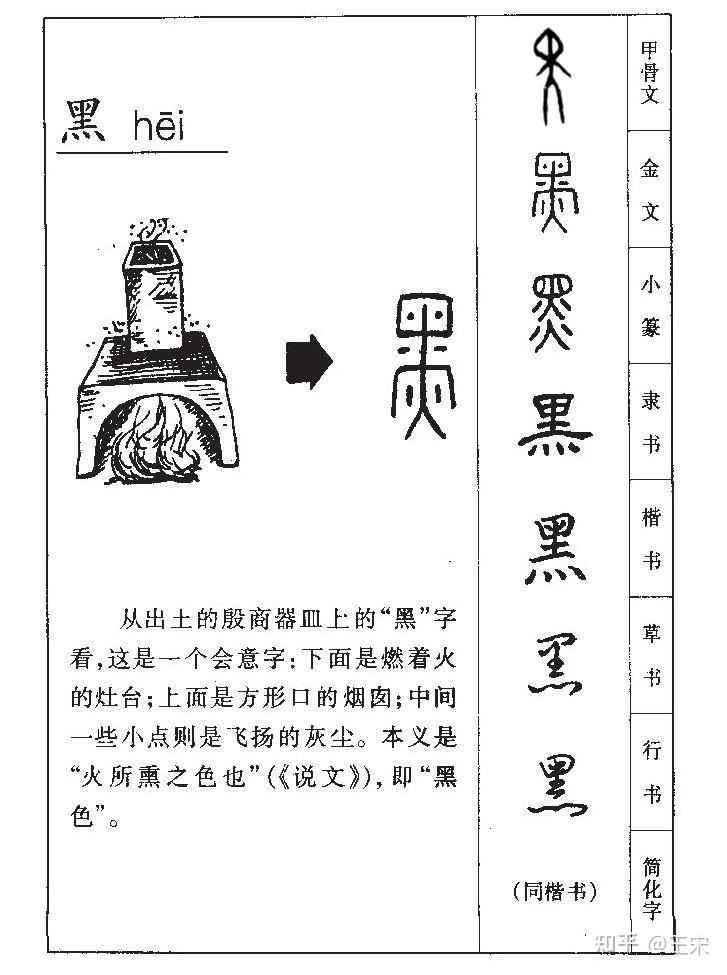 黑 hēi
从出土的殷商器皿上的“黑”字
看,这是一个会意字:下面是燃着火
的灶台;上面是方形口的烟囱;中间
一些小点则是飞扬的灰尘。本义是
“火所熏之色也”(《说文》),即“黑
色”。
甲骨文
黑
金文
黑
小篆
黑
隶书
黑
楷书
黑
草书
黑
行书
黑
简化字
(同楷书)
知乎 @王宋